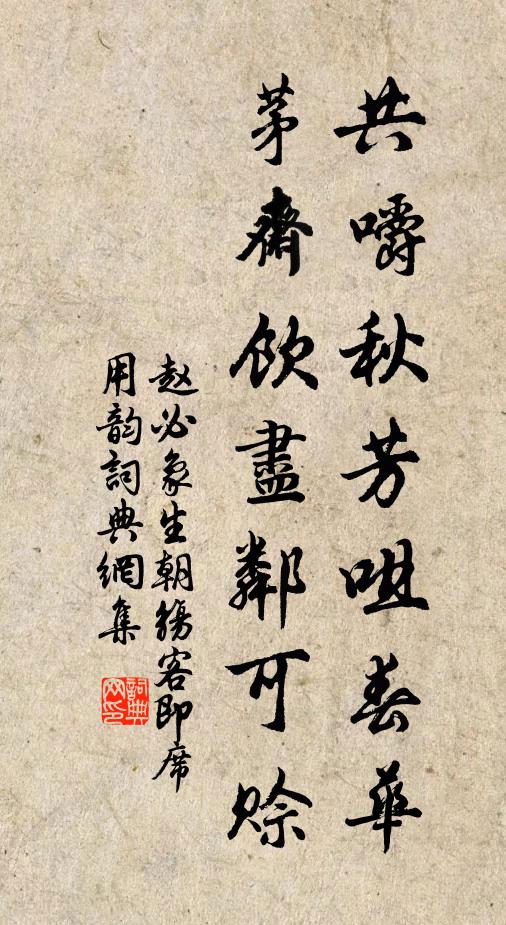 共嚼秋芳咀春華
茅齋飲盡鄰可賒
赵必象生朝觴客即席
用韵詞典網集
詞典網印